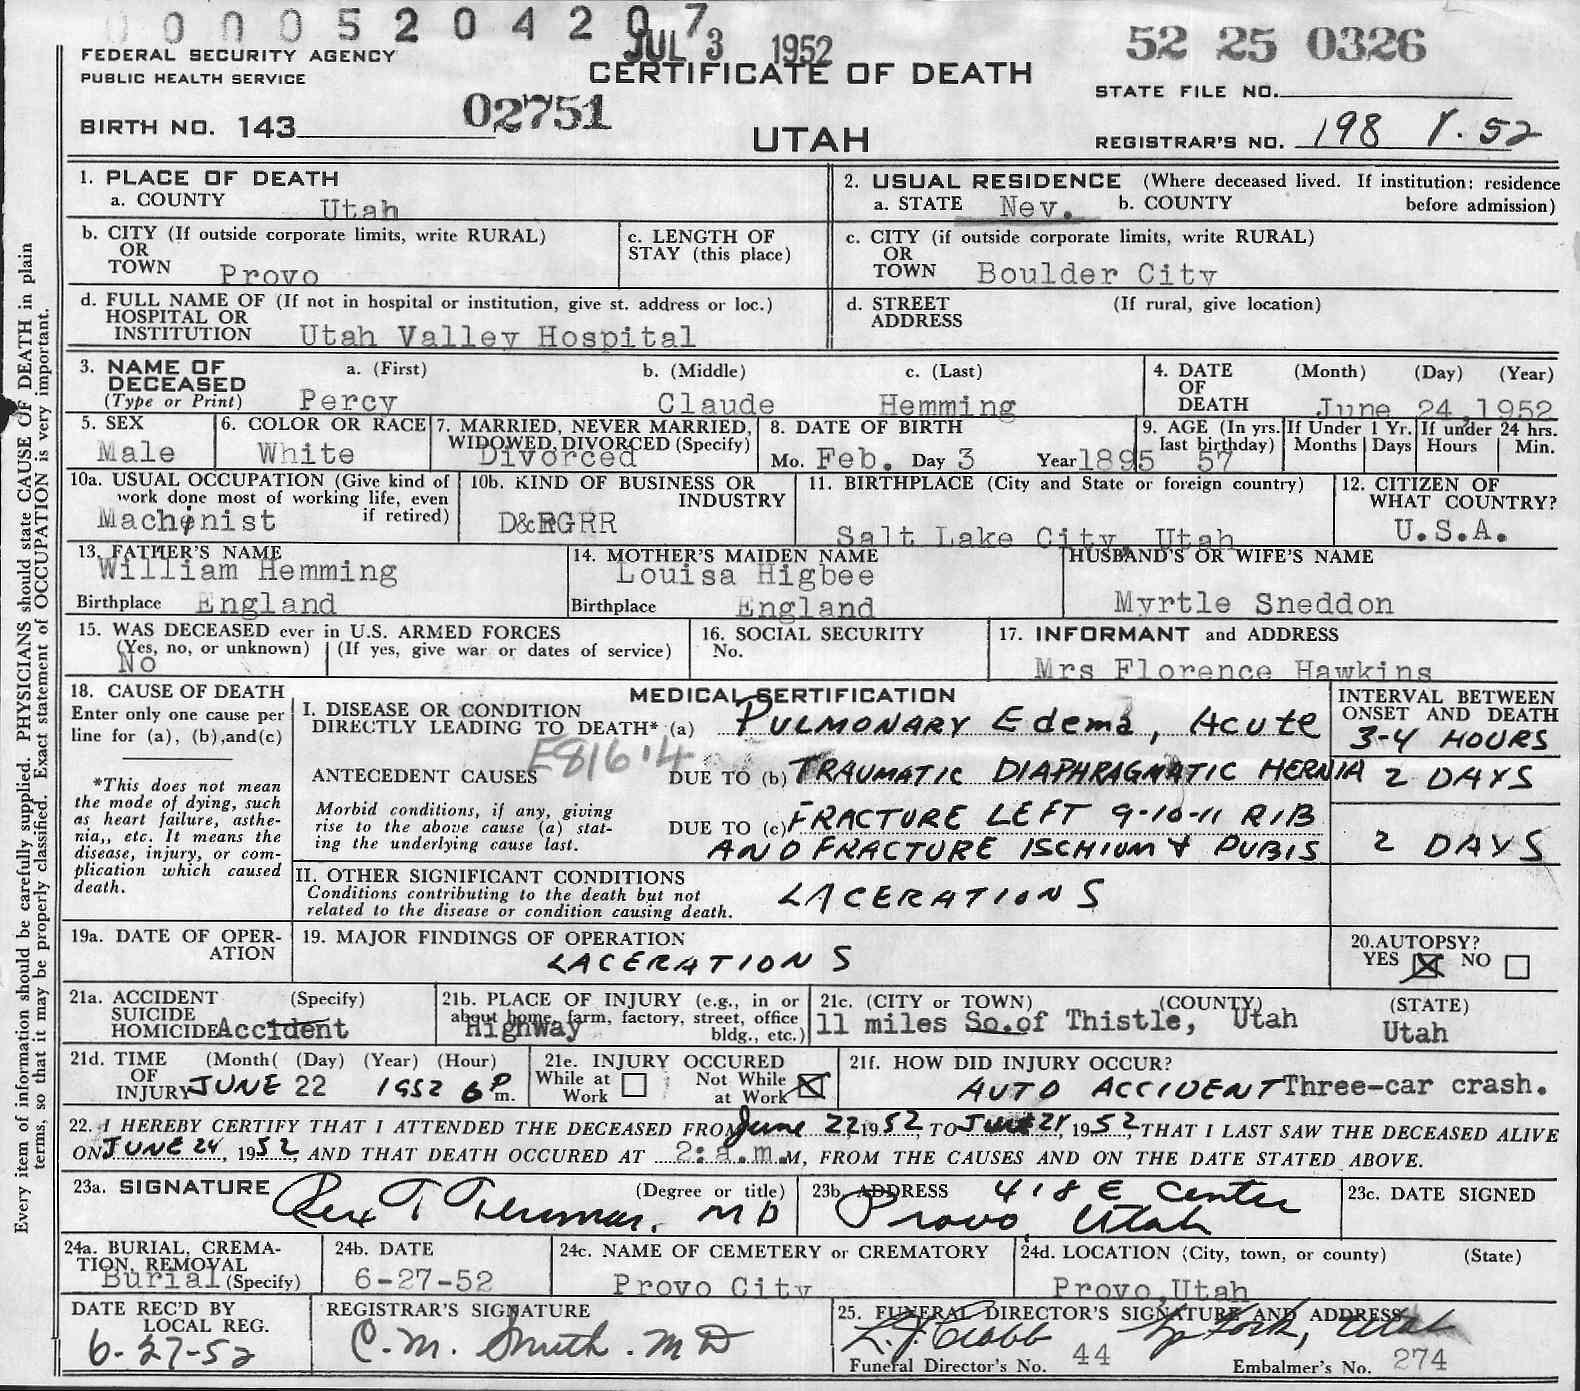 0 0 0 5 2 0 4 2 0 7
JUL 3 1952
52 25 0326
FEDERAL SECURITY AGENCY
PUBLIC HEALTH SERVICE
CERTIFICATE OF DEATH
STATE FILE NO.
BIRTH NO. 143
02751
UTAH
REGISTRAR'S NO. 198 Y-52
1. PLACE OF DEATH
a. COUNTY Utah
2. USUAL RESIDENCE (Where deceased lived. If institution: residence before admission)
a. STATE Nev. b. COUNTY
b. CITY (If outside corporate limits, write RURAL)
OR
TOWN Provo
c. LENGTH OF
STAY (this place)
c. CITY (if outside corporate limits, write RURAL)
OR
TOWN Boulder City
d. FULL NAME OF (If not in hospital or institution, give st. address or loc.)
HOSPITAL OR
INSTITUTION Utah Valley Hospital
d. STREET (If rural, give location)
ADDRESS
3. NAME OF a. (First) b. (Middle) c. (Last)
DECEASED
(Type or Print) Percy Claude Hemming
4. DATE (Month) (Day) (Year)
OF
DEATH June 24, 1952
5. SEX
Male
6. COLOR OR RACE
White
7. MARRIED, NEVER MARRIED,
WIDOWED, DIVORCED (Specify)
Divorced
8. DATE OF BIRTH
Mo. Feb. Day 3 Year 1895
9. AGE (In yrs. last birthday) 57
If Under 1 Yr.
Months Days
If under 24 hrs.
Hours Min.
10a. USUAL OCCUPATION (Give kind of
work done most of working life, even
if retired)
Machinist
10b. KIND OF BUSINESS OR
INDUSTRY
D&RGRR
11. BIRTHPLACE (City and State or foreign country)
Salt Lake City, Utah
12. CITIZEN OF
WHAT COUNTRY?
U.S.A.
13. FATHER'S NAME
William Hemming
Birthplace England
14. MOTHER'S MAIDEN NAME
Louisa Higbee
Birthplace England
HUSBAND'S OR WIFE'S NAME
Myrtle Sneddon
15. WAS DECEASED ever in U.S. ARMED FORCES
(Yes, no, or unknown) (If yes, give war or dates of service)
No
16. SOCIAL SECURITY
No.
17. INFORMANT and ADDRESS
Mrs Florence Hawkins
18. CAUSE OF DEATH
Enter only one cause per
line for (a), (b), and (c)
*This does not mean
the mode of dying, such
as heart failure, asthe-
nia,, etc. It means the
disease, injury, or com-
plication which caused
death.
MEDICAL CERTIFICATION
I. DISEASE OR CONDITION
DIRECTLY LEADING TO DEATH* (a) PULMONARY Edema, Acute
E816.4
ANTECEDENT CAUSES
DUE TO (b) TRAUMATIC DIAPHRAGMATIC HERNIA
Morbid conditions, if any, giving
rise to the above cause (a) stat-
ing the underlying cause last.
DUE TO (c) FRACTURE LEFT 9-10-11 RIB
AND FRACTURE ISCHIUM & PUBIS
INTERVAL BETWEEN
ONSET AND DEATH
3-4 HOURS
2 DAYS
2 DAYS
II. OTHER SIGNIFICANT CONDITIONS
Conditions contributing to the death but not
related to the disease or condition causing death.
LACERATIONS
19a. DATE OF OPER-
ATION
19. MAJOR FINDINGS OF OPERATION
LACERATIONS
20. AUTOPSY?
YES X NO
21a. ACCIDENT (Specify)
SUICIDE
HOMICIDE Accident
21b. PLACE OF INJURY (e.g., in or
about home, farm, factory, street, office
bldg., etc.)
Highway
21c. (CITY or TOWN) (COUNTY) (STATE)
11 miles So. of Thistle, Utah Utah
21d. TIME (Month( (Day) (Year) (Hour)
OF
INJURY JUNE 22 1952 6 P m.
21e. INJURY OCCURED
While at Work
Not While at Work X
21f. HOW DID INJURY OCCUR?
AUTO ACCIDENT Three-car crash.
22. I HEREBY CERTIFY THAT I ATTENDED THE DECEASED FROM June 22, 1952, TO June 24, 1952, THAT I LAST SAW THE DECEASED ALIVE
ON JUNE 24, 1952, AND THAT DEATH OCCURED AT 2:a.m.M, FROM THE CAUSES AND ON THE DATE STATED ABOVE.
23a. SIGNATURE (Degree or title)
Rex T MD
23b. ADDRESS 418 E Center
Provo Utah
23c. DATE SIGNED
24a. BURIAL, CREMA-
TION, REMOVAL
Burial (Specify)
24b. DATE
6-27-52
24c. NAME OF CEMETERY or CREMATORY
Provo City
24d. LOCATION (City, town, or county) (State)
Provo, Utah
DATE REC'D BY
LOCAL REG.
6-27-52
REGISTRAR'S SIGNATURE
C. M. Smith. MD
25. FUNERAL DIRECTOR'S SIGNATURE AND ADDRESS
Sp Fork, Utah
Funeral Director's No. 44 Embalmer's No. 274
Every item of information should be carefully supplied. PHYSICIANS should state CAUSE OF DEATH in plain
terms, so that it may be properly classified. Exact statement of OCCUPATION is very important.